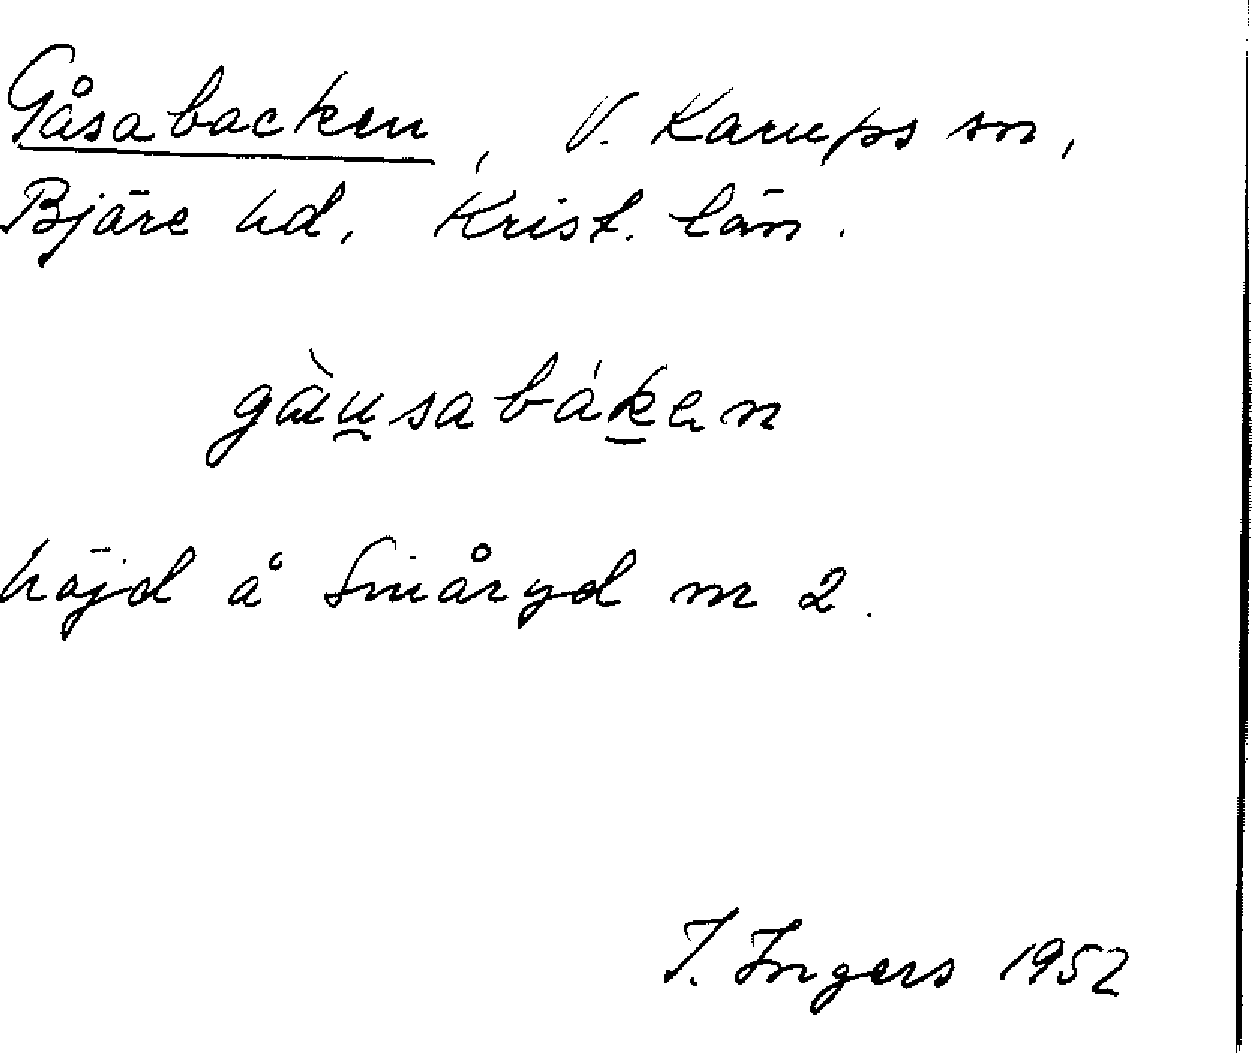 Gåsabacken, V. Karups sn,
Bjäre hd, Krist. län.
gàu̯sabák̲en
höjd å Småryd nr 2.
I. Ingers 1952